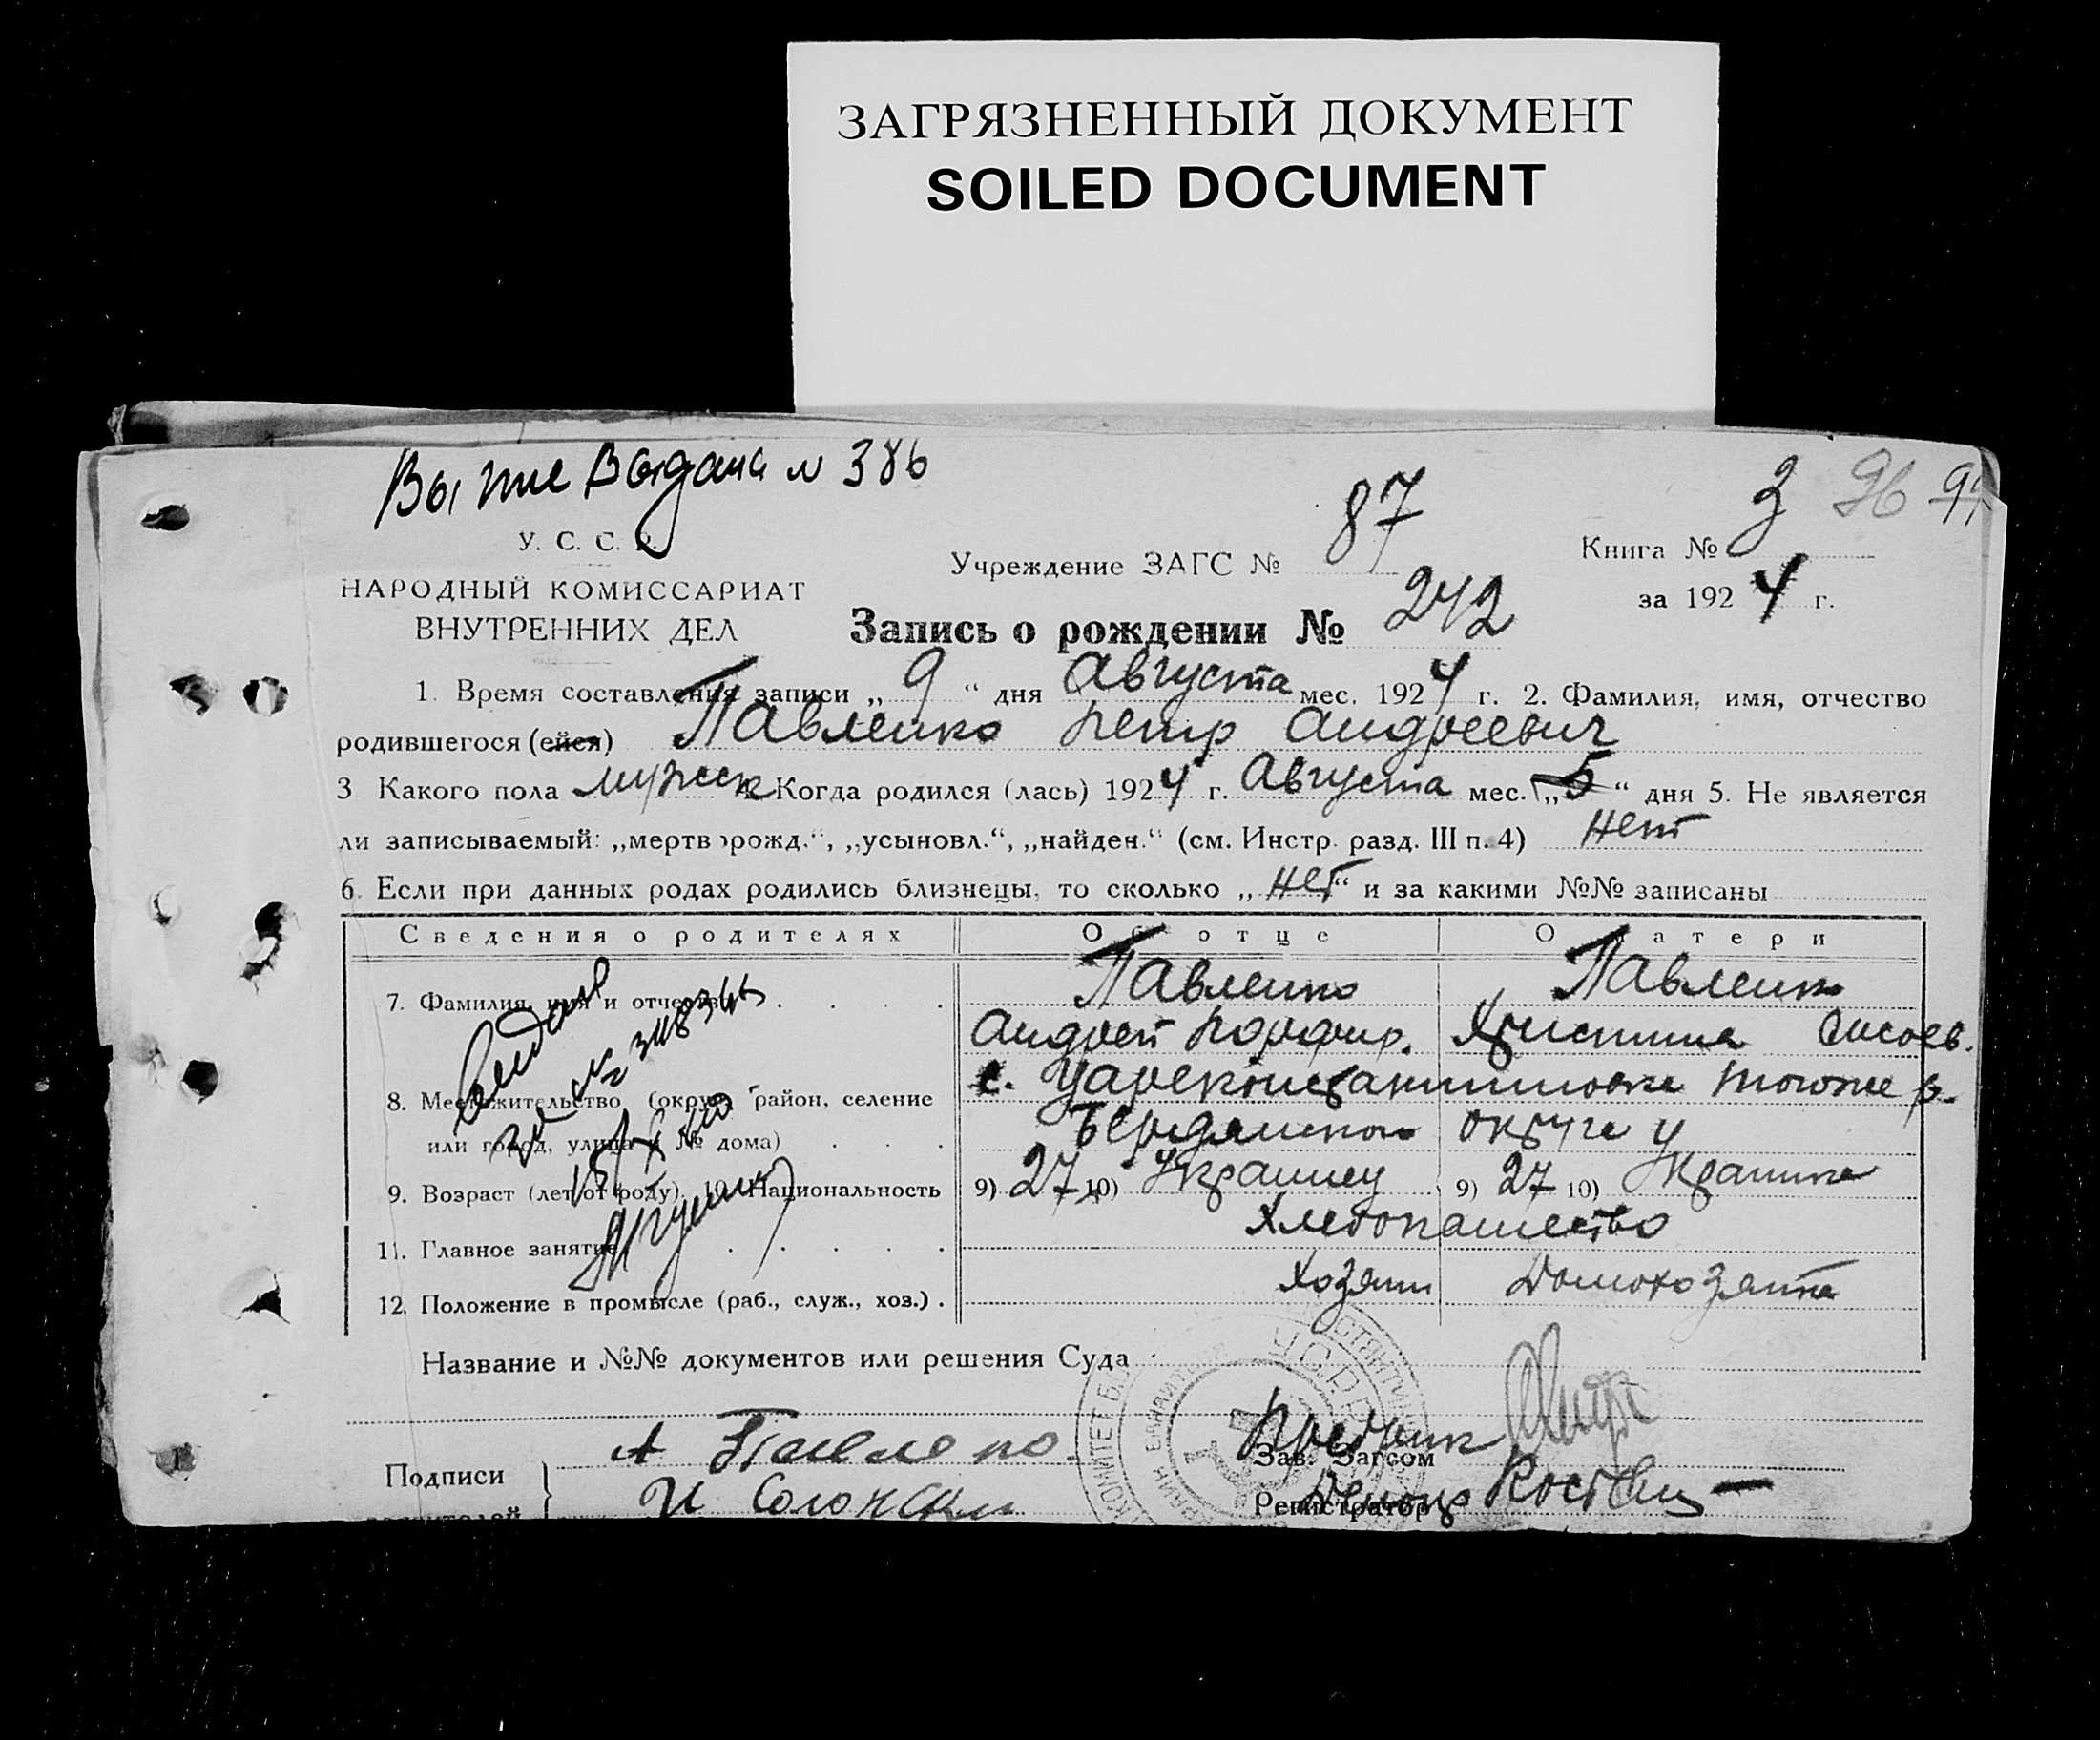 ЗАГРЯЗНЕННЫЙ ДОКУМЕНТ
SOILED DOCUMENT
Выпис Выдана № 386
3 96
У. С. С. Р.
НАРОДНЫЙ КОМИССАРИАТ
ВНУТРЕННИХ ДЕЛ
Учреждение ЗАГС № 87
Книга № 3
за 1924 г.
Запись о рождении № 242
1. Время составления записи „ 9 “ дня Августа мес. 1924 г. 2. Фамилия, имя, отчество
родившегося (ейся) Павленко Петр Андреевич
3 Какого пола мужск 4. Когда родился (лась) 1924 г. Августа мес. „ 5 “ дня 5. Не является
ли записываемый: „мертворожд.“, „усыновл.“, „найден.“ (см. Инстр. разд. III п. 4) нет
6. Если при данных родах родились близнецы, то сколько „ нет “ и за какими №№ записаны
Сведения о родителях Об отце О матери
7. Фамилия, имя и отчество . . . . Павленко Павленко
Андрей Порфир. Христина
8. Местожительство (округ, район, селение с. Цареконстантиновка того же р.
или город, улица и № дома) . . . Бердянского округа
9. Возраст (лет от роду) 10. Национальность 9) 27 10) Украинец 9) 27 10) Украинка
11. Главное занятие . . . . . Хлебопашество
12. Положение в промысле (раб., служ., хоз.) . хозяин Домохозяйка
Название и №№ документов или решения Суда
У.С.Р.Р.
Подписи А Павленко
Зав. Загсом
Регистратор